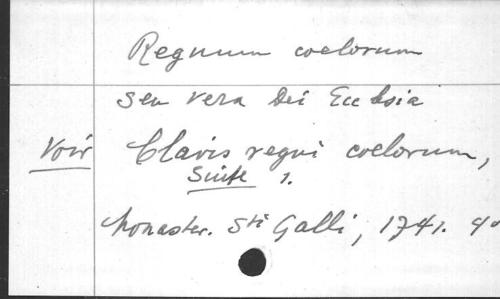 Regnum coelorum
seu vera Dei Ecclesia
Voir Clavis regni coelorum,
Suite 1.
Monaster. Sti Galli, 1741. 4o